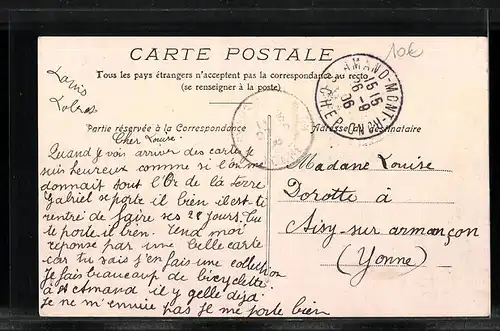 CARTE POSTALE
Tous les pays étrangers n'acceptent pas la correspondance au recto
(se renseigner à la poste)
10€
AMAND-MONT-ROND
CHER
15 15
26-9
06
Partie réservée à la Correspondance
Adresse du destinataire
Cher Louise:
Quand je vois arriver des cartes je
suis heureux comme si l'on me
donnait tout l'Or de la terre
Gabriel se porte il bien il est-il
rentré de faire ses 28 jours. tu
te porte il bien. Tenez moi
réponse par une belle carte
car tu sais j'en fais une collection
Je fais beaucoup de bicyclette.
à St Amand il y gelle déjà.
Je ne m'ennuie pas je me porte bien
Madame Louise
Dorotte à
Aisy-sur-armançon
(Yonne)